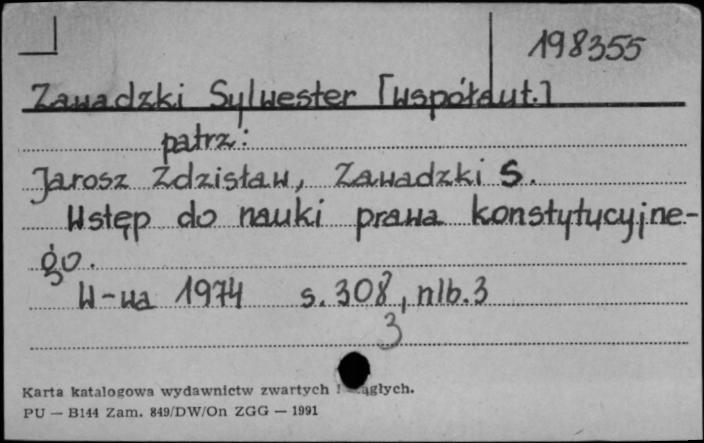 198355
Zawadzki Sylwester [współaut.]
patrz:
Jarosz Zdzisław, Zawadzki S.
Wstęp do nauki prawa konstytucyjne-
go.
W-wa 1974 s. 308, nlb. 3
3
Karta katalogowa wydawnictw zwartych i
PU — B144 Zam. 849/DW/On ZGG — 1991